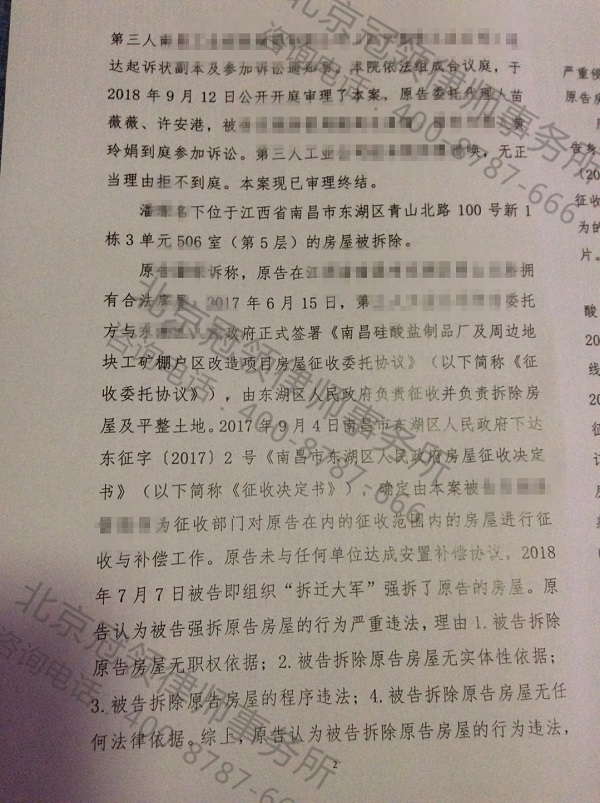 第三人南
达起诉状副本及参加诉讼通知书。本院依法组成合议庭，于
2018年9月12日公开开庭审理了本案，原告委托代理人苗
薇薇、许安港，被告 黄
玲娟到庭参加诉讼。第三人工业 映，无正
当理由拒不到庭。本案现已审理终结。
潘 名下位于江西省南昌市东湖区青山北路100号新1
栋3单元506室（第5层）的房屋被拆除。
原告 诉称，原告在江 拥
有合法房屋，2017年6月15日，第 委托
方与东 政府正式签署《南昌硅酸盐制品厂及周边地
块工矿棚户区改造项目房屋征收委托协议》（以下简称《征
收委托协议》），由东湖区人民政府负责征收并负责拆除房
屋及平整土地。2017年9月4日南昌市东湖区人民政府下达
东征字〔2017〕2号《南昌市东湖区人民政府房屋征收决定
书》（以下简称《征收决定书》），确定由本案被
为征收部门对原告在内的征收范围内的房屋进行征
收与补偿工作。原告未与任何单位达成安置补偿协议，2018
年7月7日被告即组织“拆迁大军”强拆了原告的房屋。原
告认为被告强拆原告房屋的行为严重违法，理由1.被告拆除
原告房屋无职权依据；2.被告拆除原告房屋无实体性依据；
3.被告拆除原告房屋的程序违法；4.被告拆除原告房屋无任
何法律依据。综上，原告认为被告拆除原告房屋的行为违法，
2
严重侵
原告房
告房
〔20
征收
为的
片。
酸
20
线
20
征
20
北京冠领律师事务所
咨询电话：400-8787-666
北京冠领律师事务所
咨询电话：400-8787-666
北京冠领律师事务所
咨询电话：400-8787-666